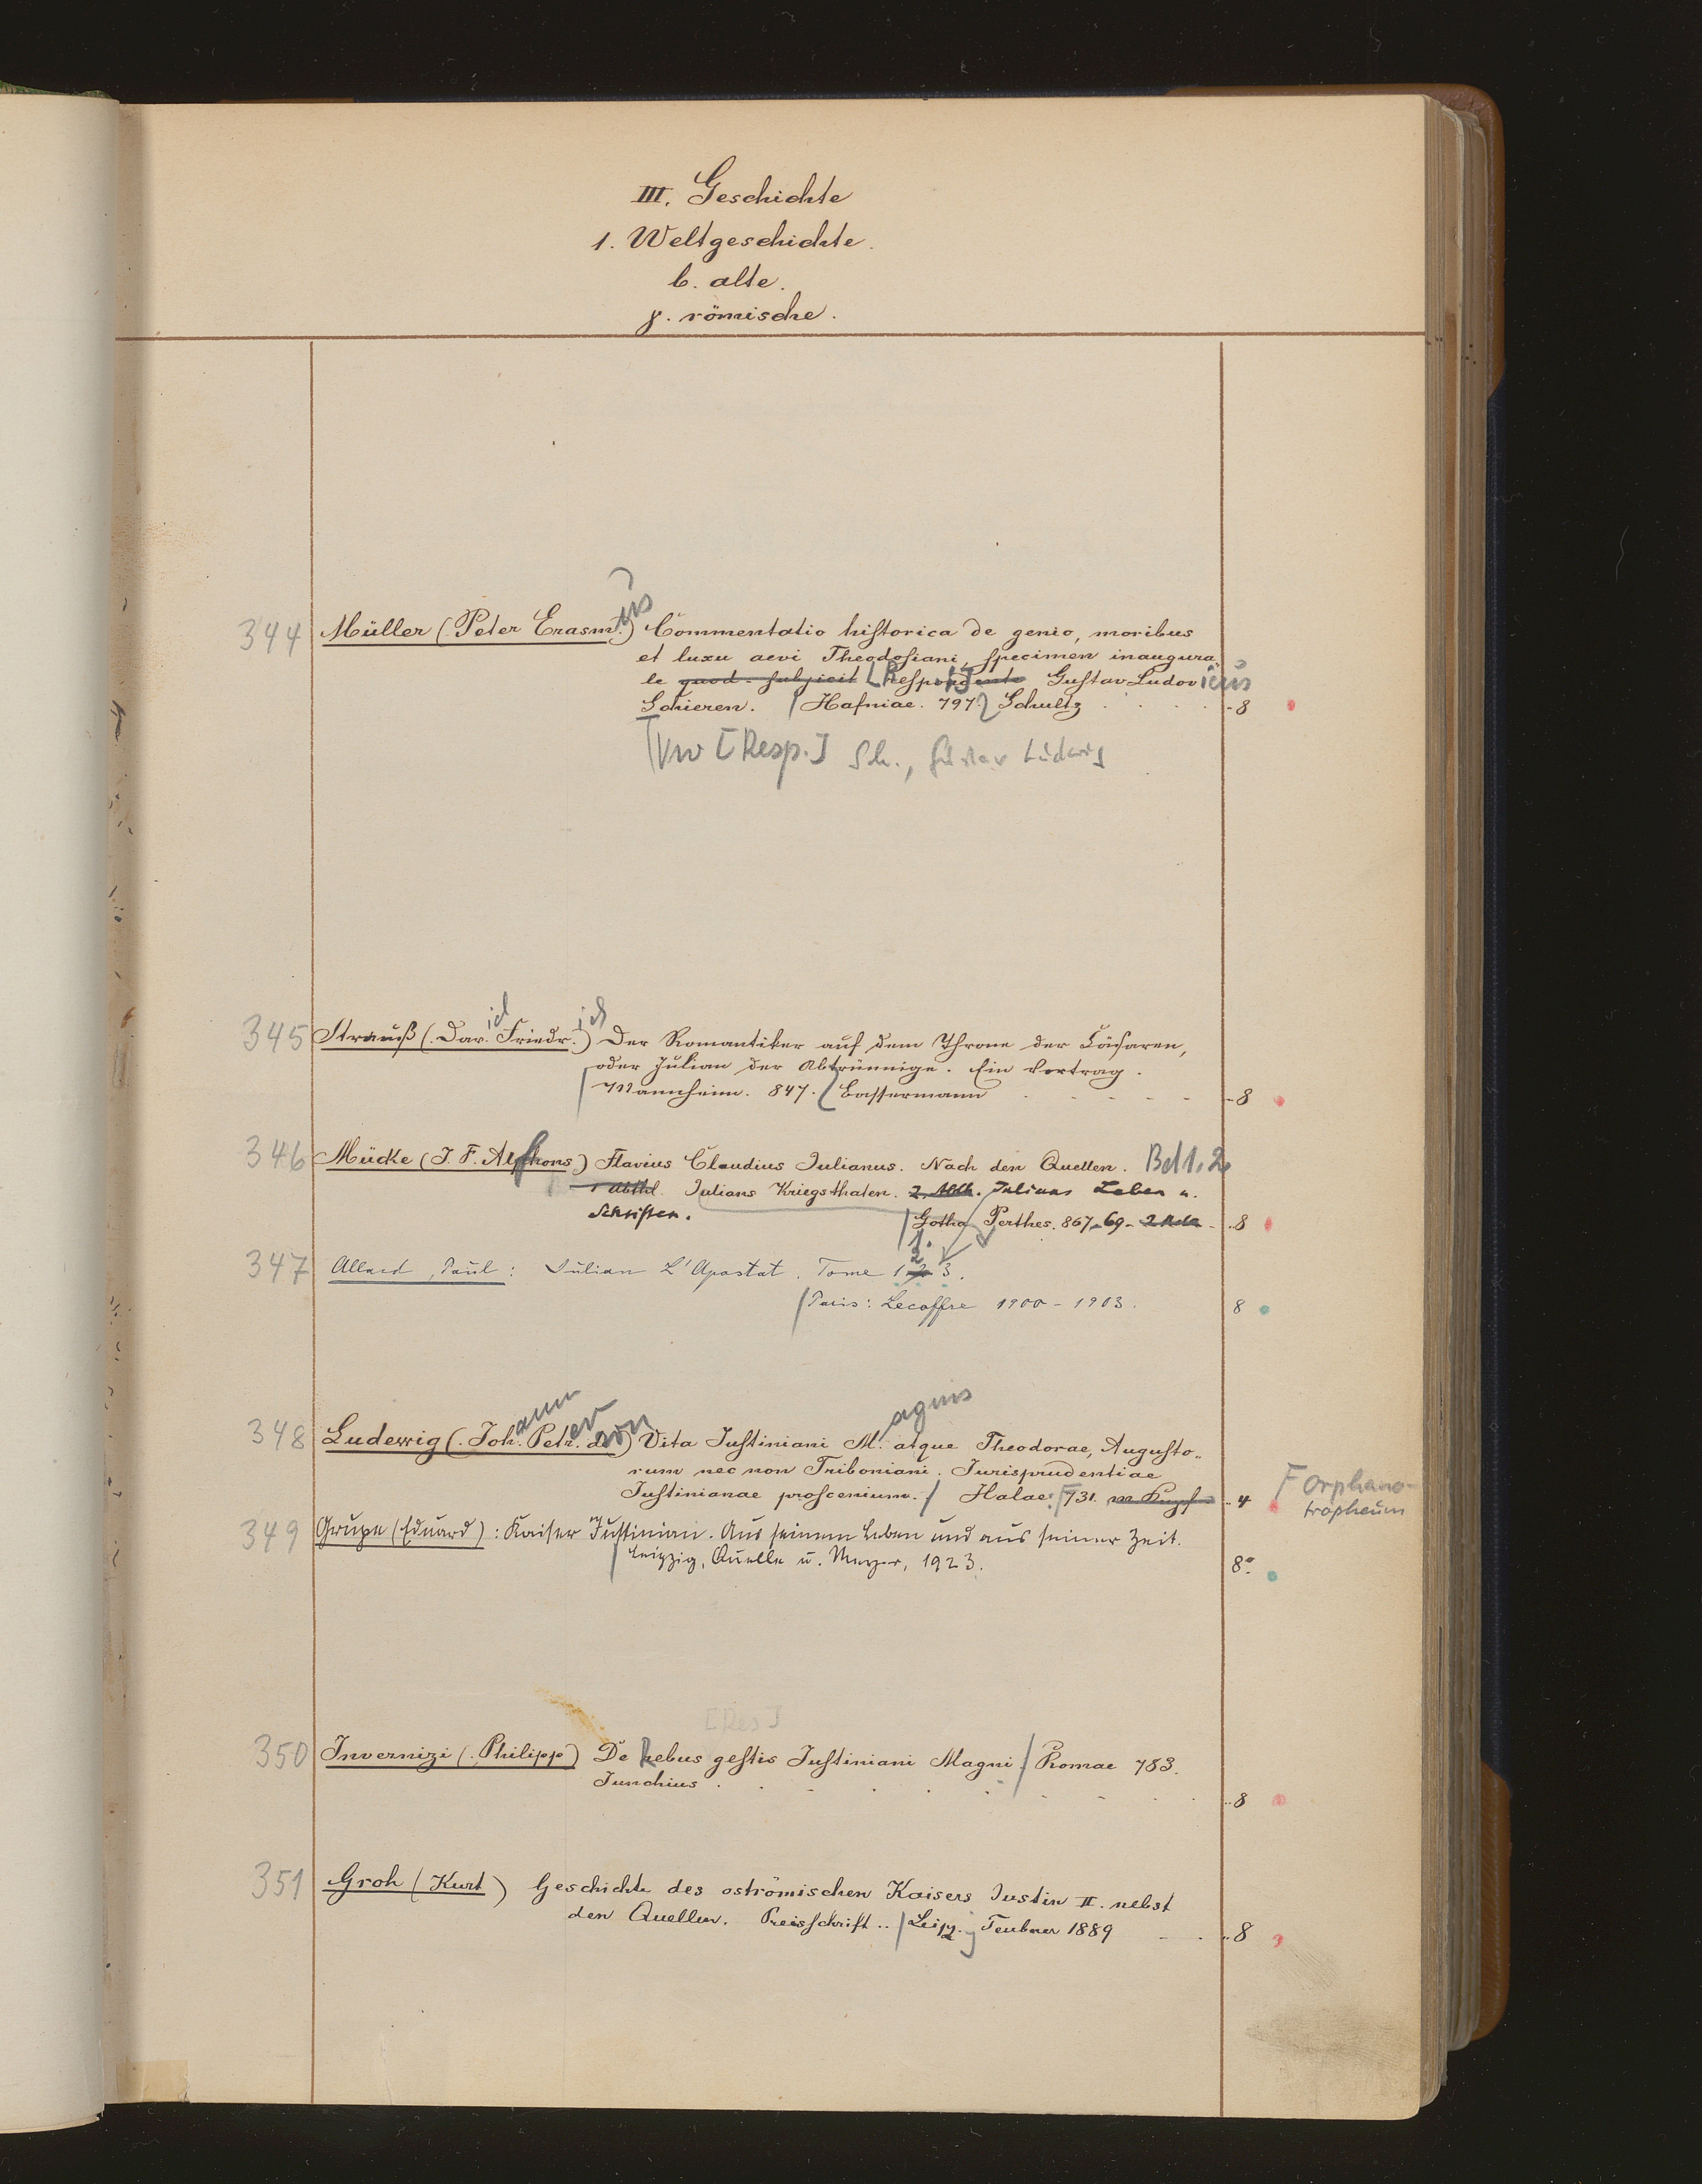 III. Geschichte
1. Weltgeschichte.
b. alte.
γ. römische.
344 Müller (Peter Erasm.us) Commentatio historica de genio, moribus
et luxu aevi Theodosiani, specimen inaugura
le quod subjicit [Respondente] Gustav Ludovicus
Schieren. / Hafniae. 797 Schultz - 8
[Resp.] Sch., Gustav Ludwig
345 Strauß (Dav.id Friedr.ich) Der Romantiker auf dem Throne der Cäsaren,
oder Julian der Abtrünnige. Ein Vortrag.
/ Mannheim. 847. Bassermann - 8
346 Mücke (J. F. Alphons) Flavius Claudius Julianus. Nach den Quellen. Bd 1. 2.
1 Abthl. Julians Kriegsthaten. 2. Abth. Julians Leben u.
Schriften. / Gotha Perthes. 867-69- 8
1. 2
347 Allard, Paul: Julian L'Apostat. Tome 1 2 3.
/ Paris: Lecoffre 1900-1903. 8
348 Ludewig (Johann Peter von) Vita Justiniani M.agnus atque Theodorae, Augusto-
rum nec non Triboniani. Jurisprudentiae
Justinianae proscenium. / Halae: 731. m Kupf 4 Orphano-
tropheum
349 Grupe (Eduard): Kaiser Justinian. Aus seinem Leben und aus seiner Zeit.
/ Leipzig, Quelle u. Meyer, 1923. 8°.
[Res]
350 Invernizi (Philipp) De Rebus gestis Justiniani Magni. / Romae 783.
Junchius 8
351 Groh (Kurt) Geschichte des oströmischen Kaisers Justin II. nebst
den Quellen. Preisschrift.. / Leipz.g Teubner 1889 8